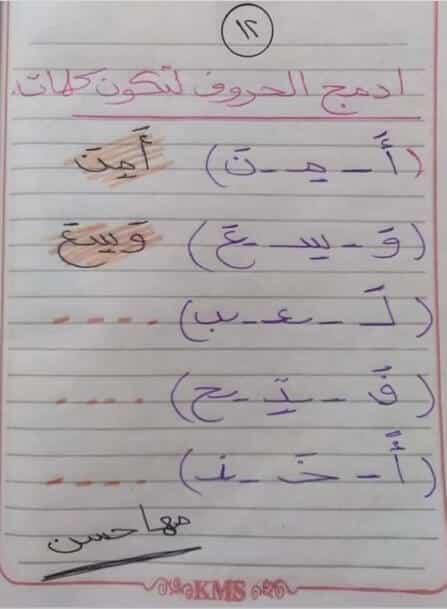 ١٢
ادمج الحروف لتكون كلمات.
(أَ - مِـ - ـنَ) أَمِنَ
(وَ - سِـ - ـعَ) وَسِعَ
(لَـ - ـعـ - ـب) - - - -
(فَـ - ـرِ - ح) - - - -
(أَ - خَـ - ـذ) - - - -
مها حسن
KMS